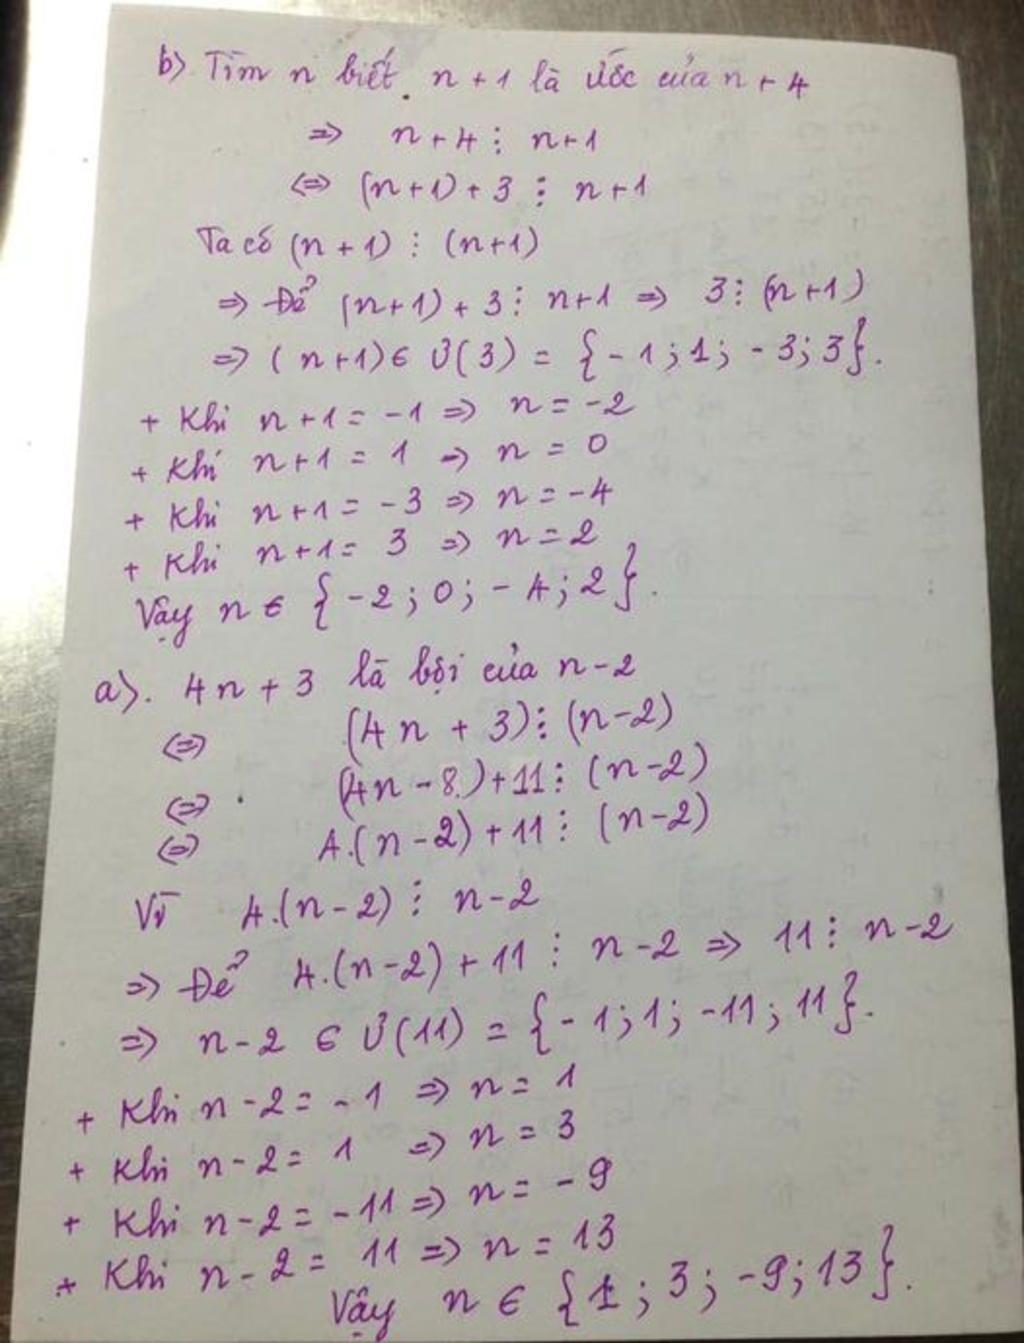 b) Tìm n biết n + 1 là ước của n + 4
=> n + 4 ⋮ n+1
<=> (n+1) + 3 ⋮ n+1
Ta có (n + 1) ⋮ (n+1)
=> Để (n+1) + 3 ⋮ n+1 => 3 ⋮ (n+1)
=> (n+1) ∈ Ư(3) = {-1; 1; -3; 3}.
+ Khi n+1 = -1 => n = -2
+ Khi n+1 = 1 => n = 0
+ Khi n+1 = -3 => n = -4
+ Khi n+1 = 3 => n = 2
Vậy n ∈ {-2; 0; -4; 2}.
a). 4n + 3 là bội của n-2
<=> (4n + 3) ⋮ (n-2)
<=> (4n - 8) + 11 ⋮ (n-2)
<=> 4.(n-2) + 11 ⋮ (n-2)
Vì 4.(n-2) ⋮ n-2
=> Để 4.(n-2) + 11 ⋮ n-2 => 11 ⋮ n-2
=> n-2 ∈ Ư(11) = {-1; 1; -11; 11}.
+ Khi n-2 = -1 => n = 1
+ Khi n-2 = 1 => n = 3
+ Khi n-2 = -11 => n = -9
+ Khi n-2 = 11 => n = 13
Vậy n ∈ {1; 3; -9; 13}.